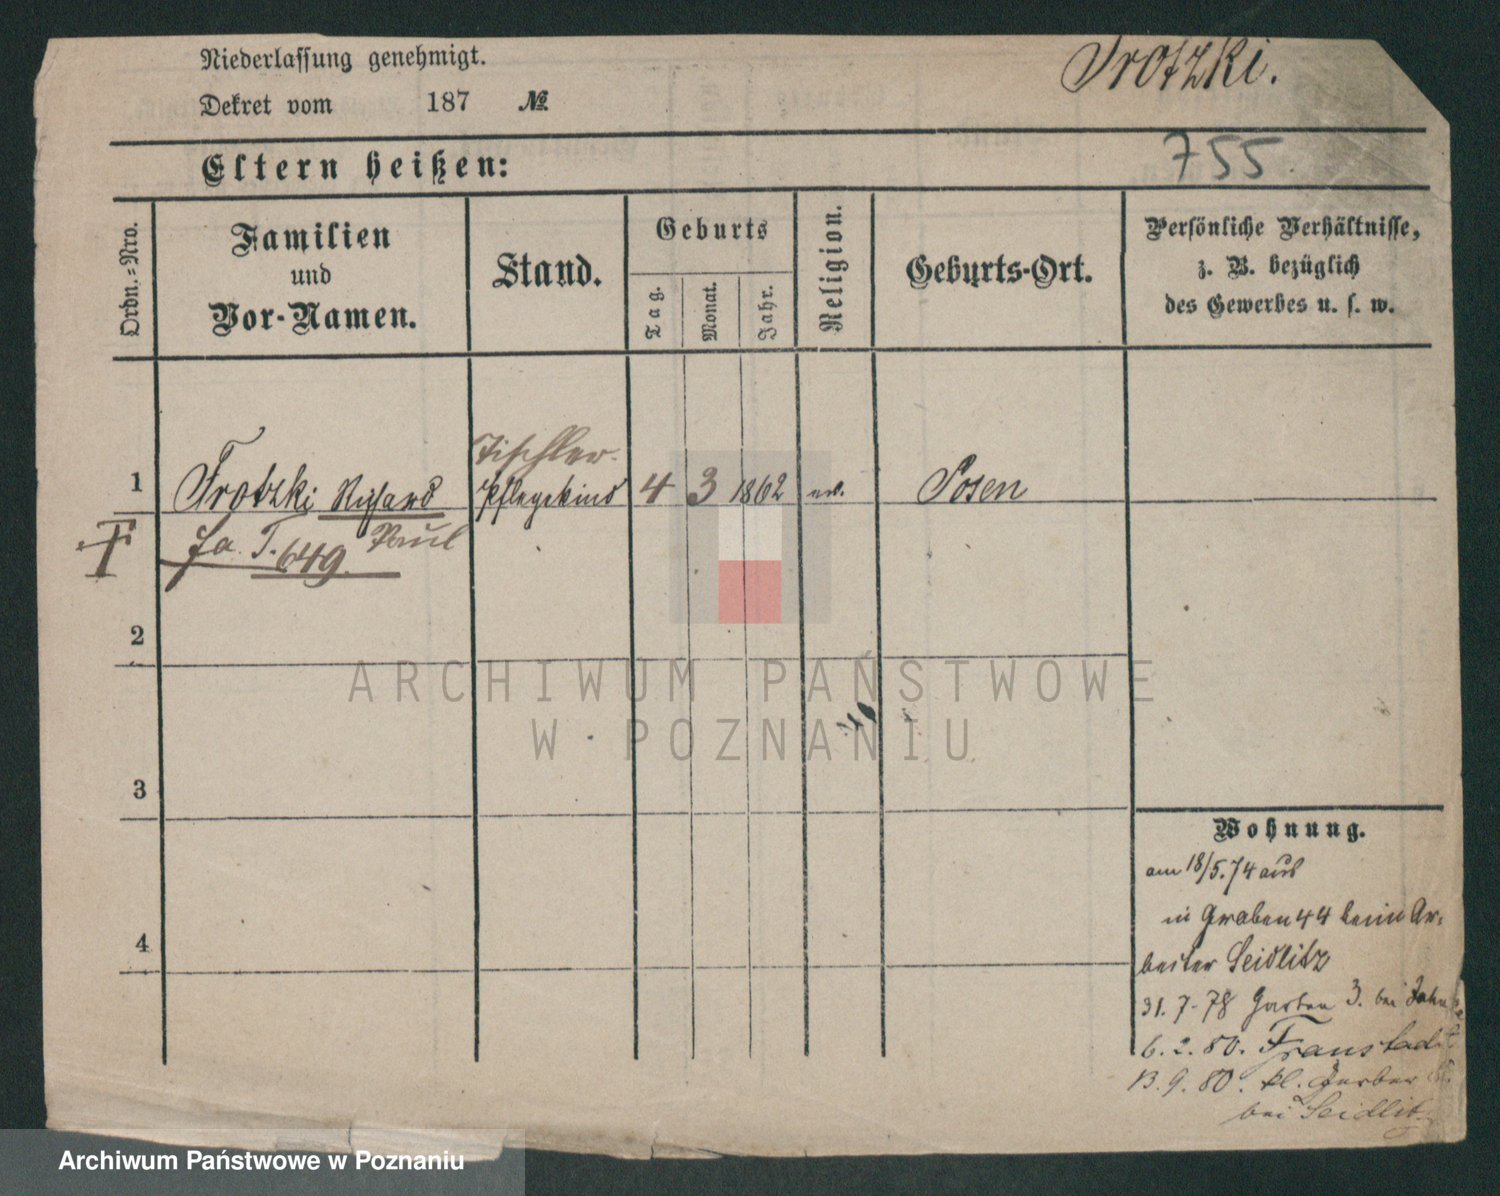 Niederlassung genehmigt.
Trotzki.
Dekret vom 187 №
755
Eltern heißen:
Ordn.=Nro.
Familien
und
Vor-Namen.
Stand.
Geburts
Tag.
Monat.
Jahr.
Religion.
Geburts-Ort.
Persönliche Verhältnisse,
z. B. bezüglich
des Gewerbes u. s. w.
Tischler-
1 Trotzki Richard Pflegekind 4 3 1862 ev. Posen
Paul
fa. T. 649.
2
ARCHIWUM PAŃSTWOWE
W POZNANIU
3
Wohnung.
am 18/5.74 aus
in Graben 44 beim Ar-
beiter Seidlitz
4
31.7.78 Garten 3. bei
6.2.80. Fraustadt
13.9.80. kl. Gerber
bei Seidlitz
Archiwum Państwowe w Poznaniu